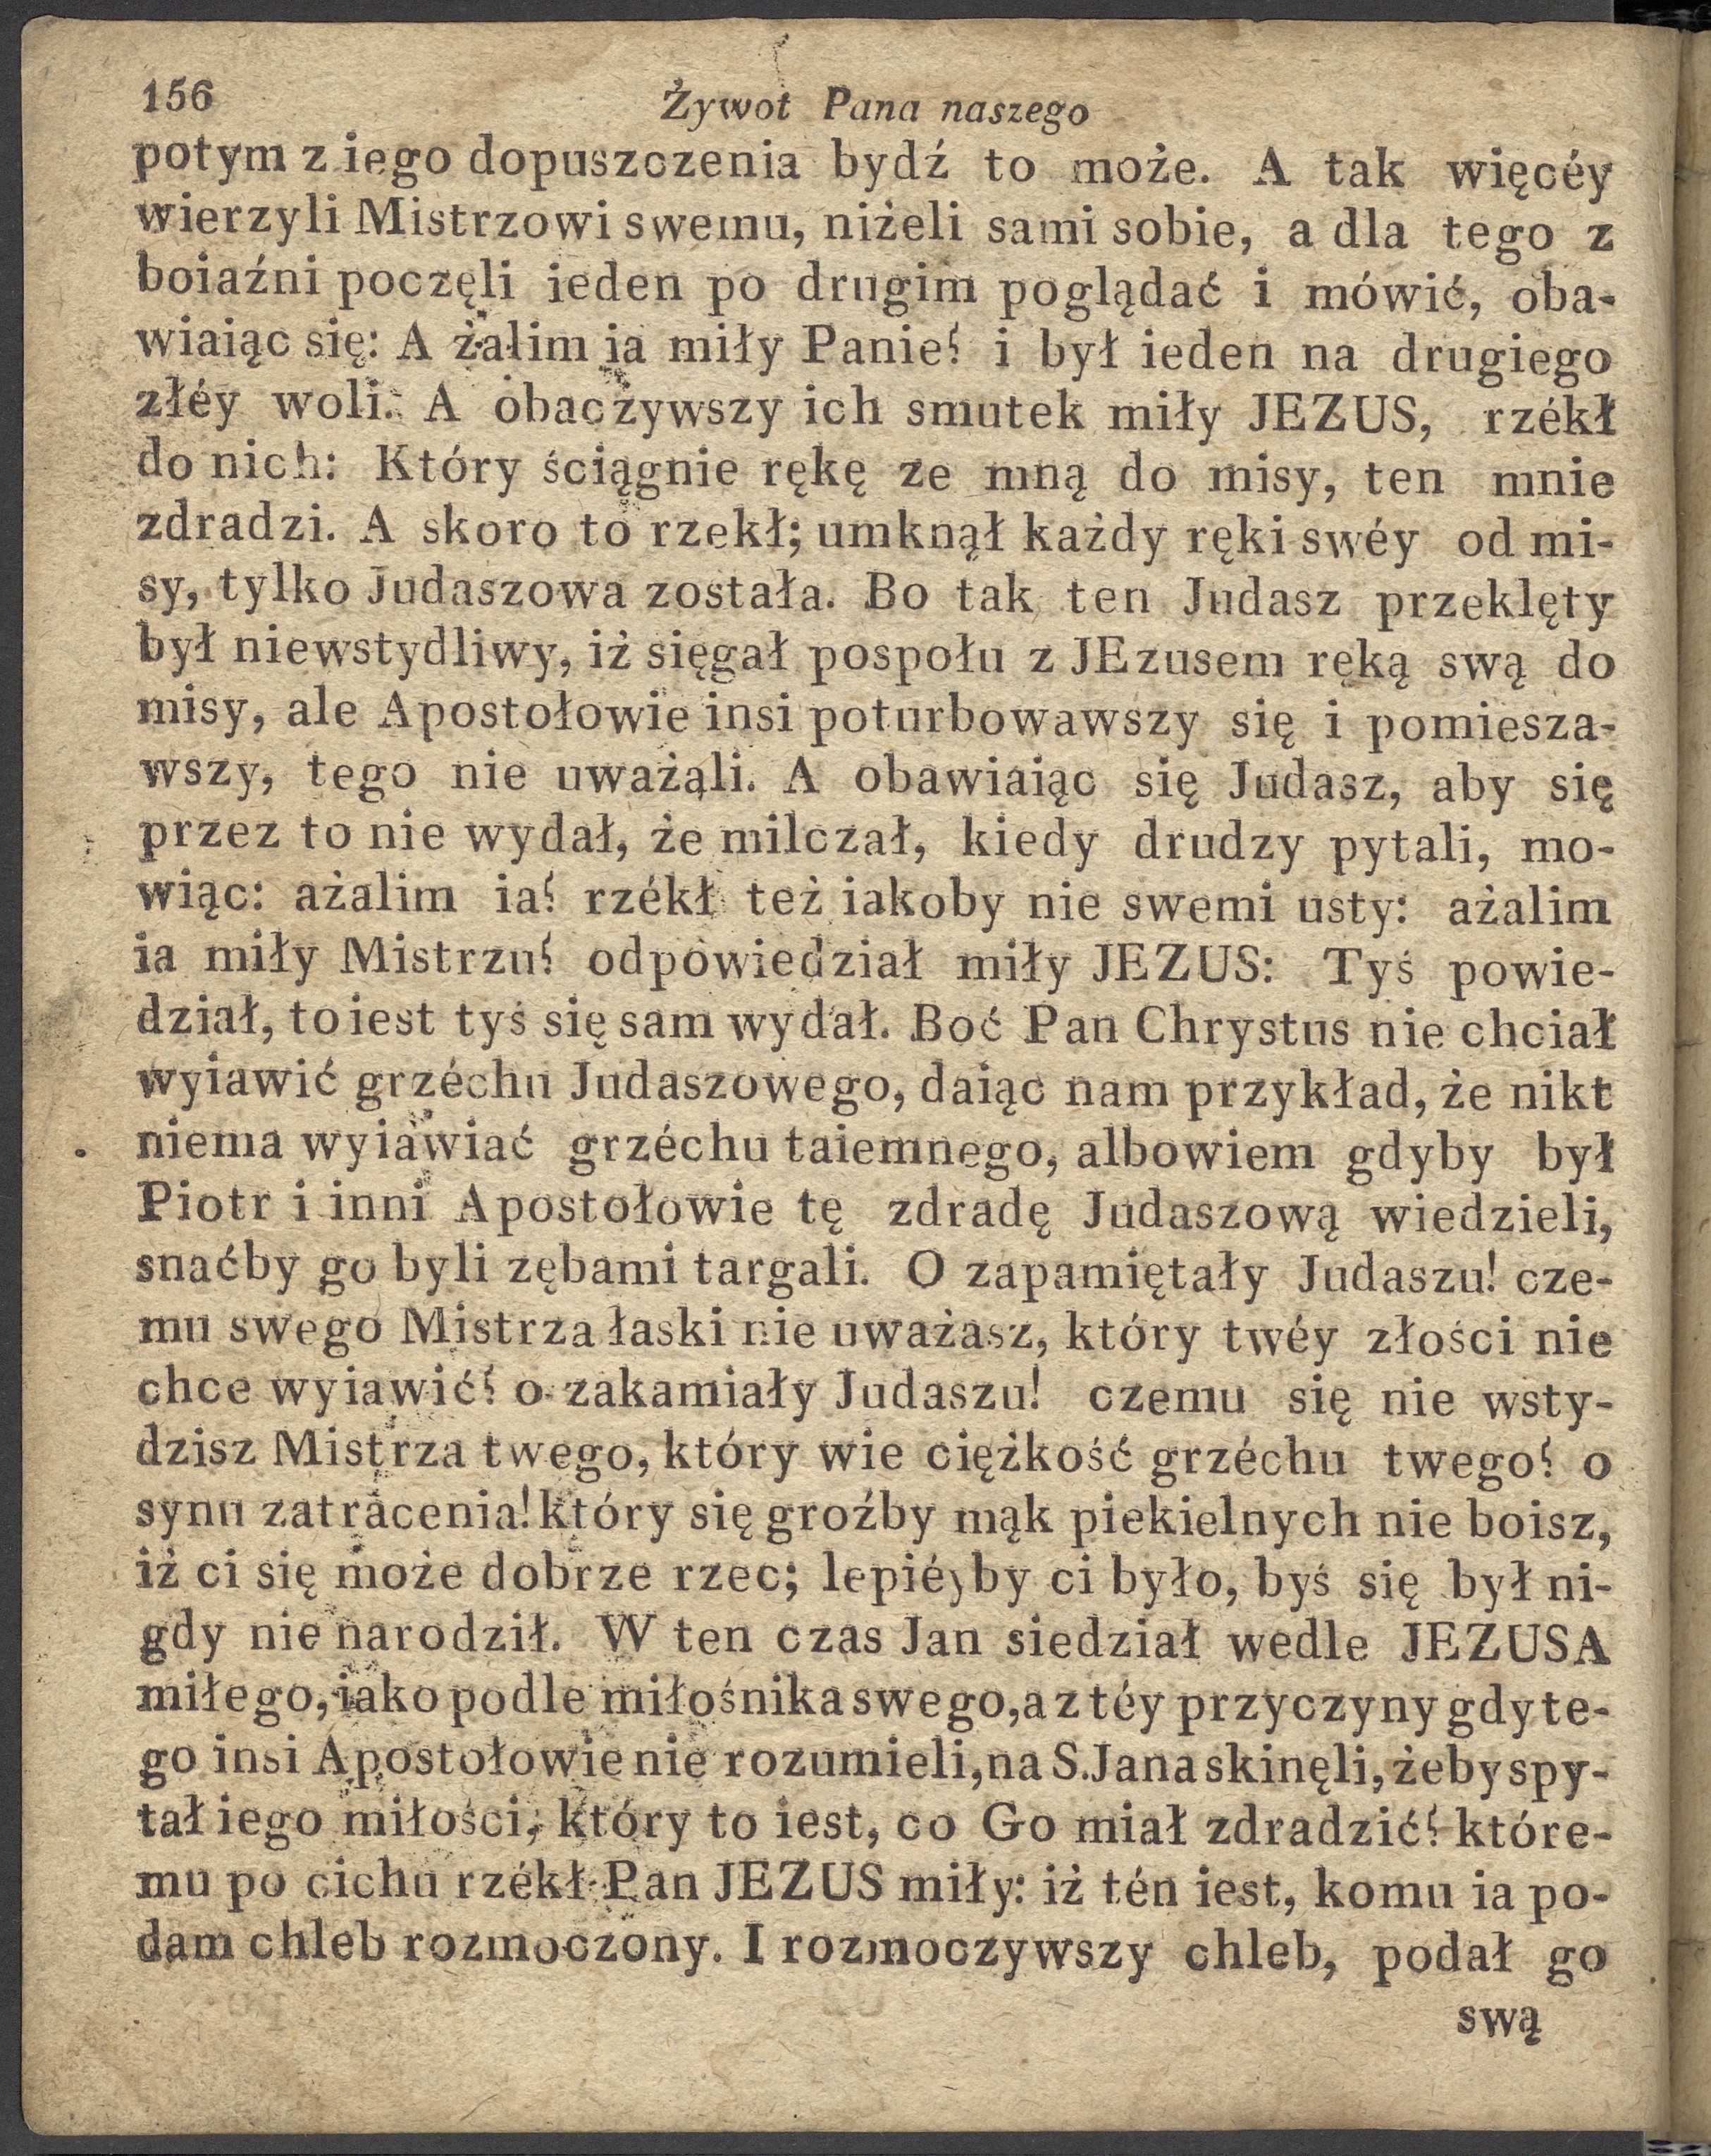 156
Żywot Pana naszego
potym z iego dopuszczenia bydź to może. A tak więcéy
wierzyli Mistrzowi swemu, niżeli sami sobie, a dla tego z
boiaźni poczęli ieden po drugim poglądać i mówić, oba-
wiaiąc się: A żalim ia miły Panie? i był ieden na drugiego
złéy woli. A obaczywszy ich smutek miły JEZUS, rzékł
do nich: Który ściągnie rękę ze mną do misy, ten mnie
zdradzi. A skoro to rzekł; umknął każdy ręki swéy od mi-
sy, tylko Judaszowa została. Bo tak ten Judasz przeklęty
był niewstydliwy, iż sięgał pospołu z JEzusem ręką swą do
misy, ale Apostołowie insi poturbowawszy się i pomiesza-
wszy, tego nie uważąli. A obawiaiąc się Judasz, aby się
przez to nie wydał, że milczał, kiedy drudzy pytali, mo-
wiąc: ażalim ia? rzékł też iakoby nie swemi usty: ażalim
ia miły Mistrzu? odpowiedział miły JEZUS: Tyś powie-
dział, to iest tyś się sam wydał. Boć Pan Chrystus nie chciał
wyiawić grzéchu Judaszowego, daiąc nam przykład, że nikt
niema wyiawiać grzéchu taiemnego, albowiem gdyby był
Piotr i inni Apostołowie tę zdradę Judaszową wiedzieli,
snaćby go byli zębami targali. O zapamiętały Judaszu! cze-
mu swego Mistrza łaski nie uważasz, który twéy złości nie
chce wyiawić? o zakamiały Judaszu! czemu się nie wsty-
dzisz Mistrza twego, który wie ciężkość grzéchu twego? o
synu zatracenia! który się groźby mąk piekielnych nie boisz,
iż ci się może dobrze rzec; lepiéyby ci było, byś się był ni-
gdy nie narodził. W ten czas Jan siedział wedle JEZUSA
miłego, iako podle miłośnika swego, a z téy przyczyny gdy te-
go insi Apostołowie nie rozumieli, na S. Jana skinęli, żeby spy-
tał iego miłości, który to iest, co Go miał zdradzić? które-
mu po cichu rzékł Pan JEZUS miły: iż tén iest, komu ia po-
dam chleb rozmoczony. I rozmoczywszy chleb, podał go
swą